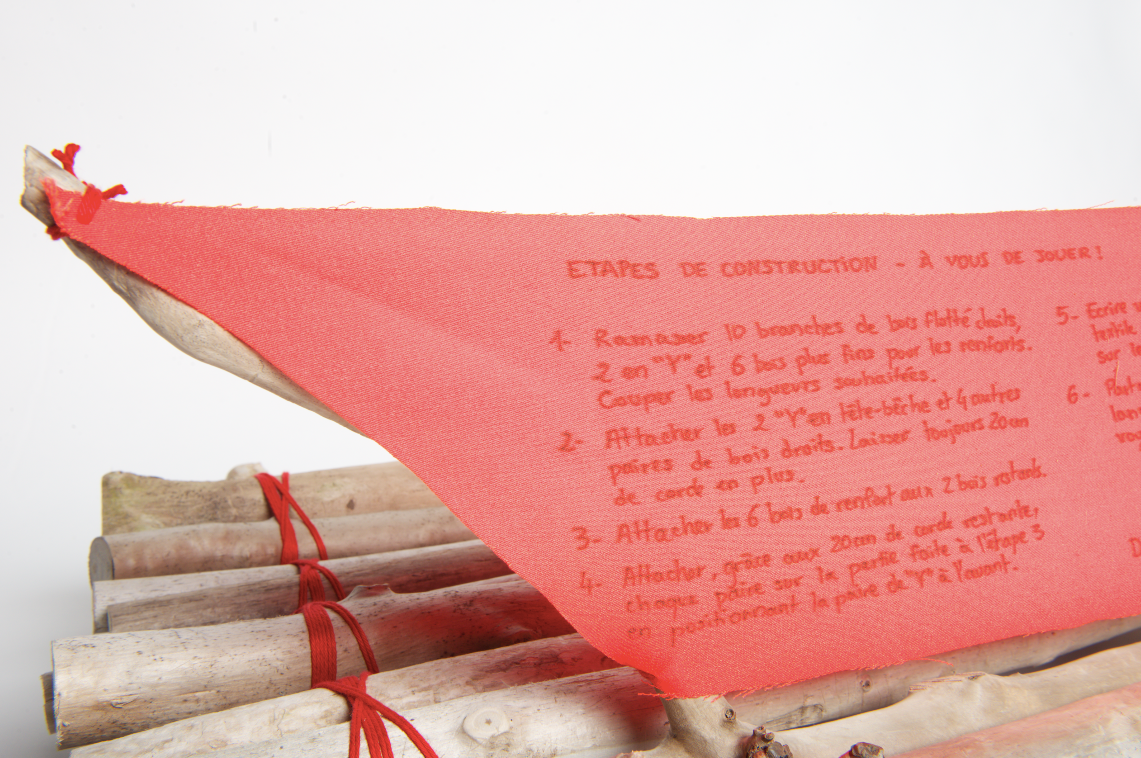 ETAPES DE CONSTRUCTION - À VOUS DE JOUER !
1- Ramasser 10 branches de bois flotté droits,
2 en "Y" et 6 bois plus fins pour les renforts.
Couper les longueurs souhaitées.
2- Attacher les 2 "Y" en tête-bêche et 4 autres
paires de bois droits. Laisser toujours 20 cm
de corde en plus.
3- Attacher les 6 bois de renfort aux 2 bois restants.
4- Attacher, grâce aux 20 cm de corde restante,
chaque paire sur la partie faite à l'étape 3
en positionnant la paire de "Y" à l'avant.
5- Ecrire
sur
6-